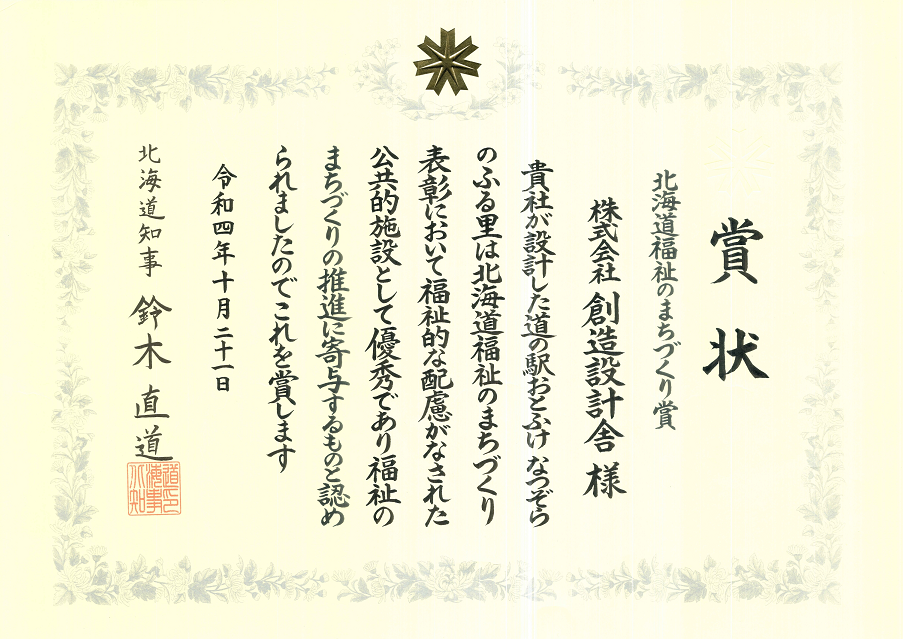 賞状
北海道福祉のまちづくり賞
株式会社 創造設計舎 様
貴社が設計した道の駅おとふけ なつぞら
のふる里は北海道福祉のまちづくり
表彰において福祉的な配慮がなされた
公共的施設として優秀であり福祉の
まちづくりの推進に寄与するものと認め
られましたのでこれを賞します
令和四年十月二十一日
北海道知事 鈴木直道